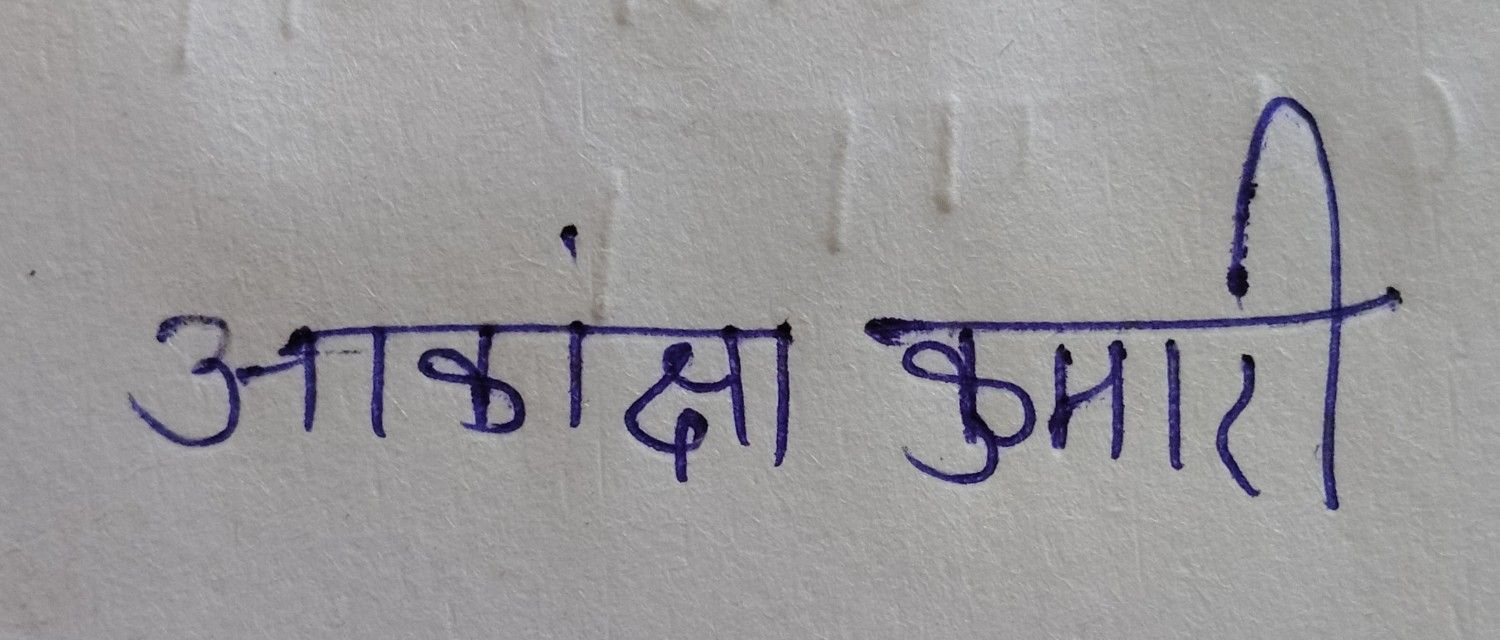 आकांक्षा कुमारी